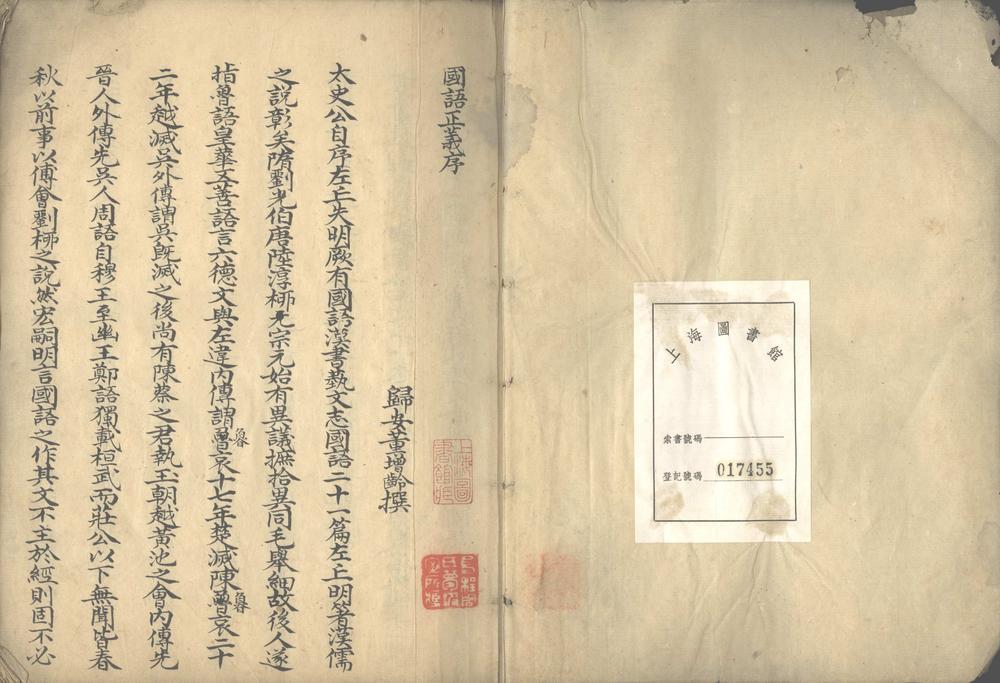 國語正義序
歸安董增齡撰
太史公自序左丘失明厥有國語漢書藝文志國語二十一篇左丘明著漢儒
之說彰矣隋劉光伯唐陸淳柳宗元始有異議摭拾異同毛舉細故後人遂
指魯語皇華五善語言六德文與左違內傳謂魯哀十七年楚滅陳魯哀二十
二年越滅吳外傳謂吳既滅之後尚有陳蔡之君執玉朝越黃池之會內傳先
晉人外傳先吳人周語自穆王至幽王鄭語獨載桓武而莊公以下無聞皆春
秋以前事以傅會劉柳之說然宏嗣明言國語之作其文不主於經則固不必
上海圖書館藏
上海圖書館
索書號碼
登記號碼 017455